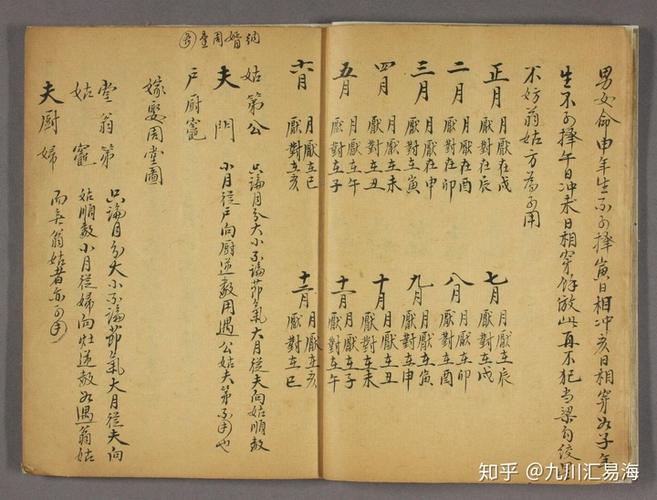 男女命申年生不可擇寅日相冲亥日相穿如子年
生不可擇午日冲未日相穿餘倣此再不犯当梁勾絞
不妨翁姑方為可用
正月 月厭在戌 厭對在辰
七月 月厭在辰 厭對在戌
二月 月厭在酉 厭對在卯
八月 月厭在卯 厭對在酉
三月 月厭在申 厭對在寅
九月 月厭在寅 厭對在申
四月 月厭在未 厭對在丑
十月 月厭在丑 厭對在未
五月 月厭在午 厭對在子
十一月 月厭在子 厭對在午
六月 月厭在巳 厭對在亥
十二月 月厭在亥 厭對在巳
納婚周堂
姑第公
夫門
戶廚竈
只論月分大小不論節氣大月從夫向姑順数
小月從戶向廚逆数用遇公姑夫第不可用也
嫁娶周堂圖
堂翁第
姑竈
夫廚婦
只論月分大小不論節氣大月從夫向
姑順数小月從婦向灶逆数如遇翁姑
而无翁姑者亦可用
知乎 @九川汇易海